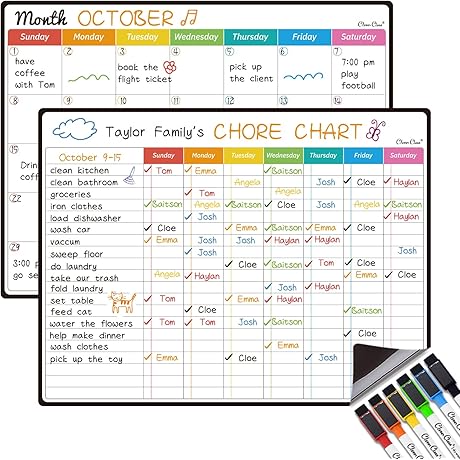 Month OCTOBER
Clever Clove
Sunday Monday Tuesday Wednesday Thursday Friday Saturday
1 2 3 4 5 6 7
have coffee with Tom
book the flight ticket
pick up the client
7:00 pm play football
8 9 10 11 12 13 14
15
29
3:00 p
go se
Taylor Family's CHORE CHART
October 9-15 Sunday Monday Tuesday Wednesday Thursday Friday Saturday
clean kitchen Tom Emma Baitson
clean bathroom Angela Josh Cloe Haylan
groceries Tom Angela Angela
iron clothes Baitson Angela Baitson Cloe Baitson Baitson
load dishwasher Josh Haylan
wash car Cloe Emma Baitson Emma Cloe
vaccum Emma Josh Josh Haylan Haylan
sweep floor Josh Josh
do laundry Cloe Baitson Cloe
take our trash Angela Haylan Angela Emma Cloe
fold laundry Josh Haylan
set table Tom Haylan Tom
feed cat Cloe Baitson
water the flowers Tom Tom Josh Baitson
help make dinner Cloe
wash clothes Emma
pick up the toy Emma Cloe Josh